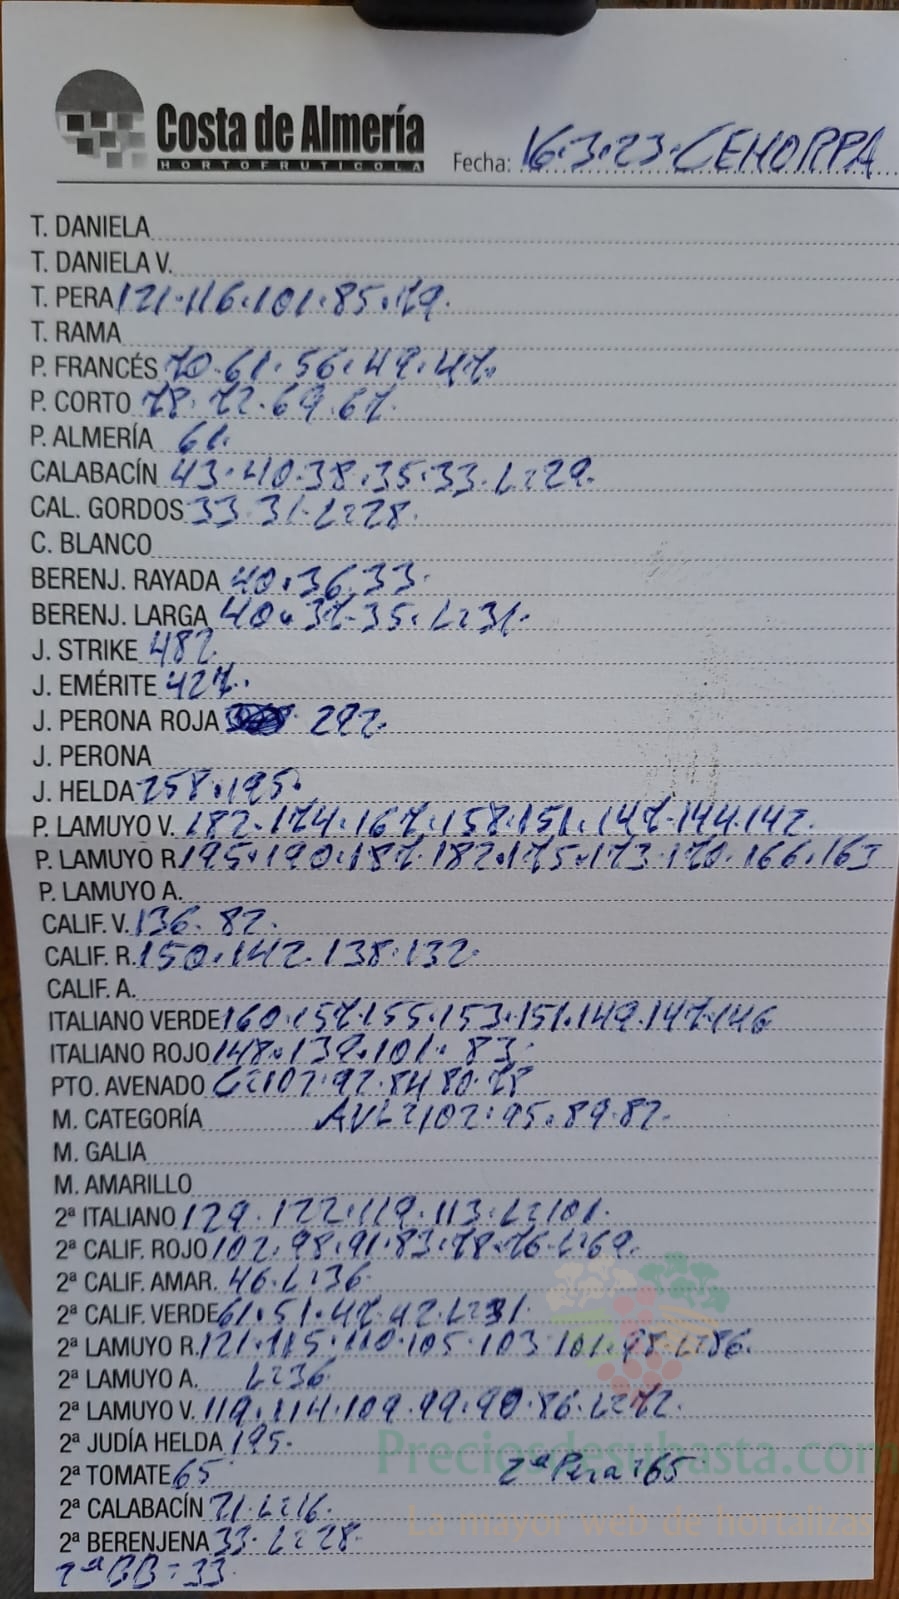 Costa de Almería
HORTOFRUTICOLA
Fecha: 16.3.23. CEHORPA
T. DANIELA
T. DANIELA V.
T. PERA 121.116.101.85.79.
T. RAMA
P. FRANCÉS 70.61.56.49.47.
P. CORTO 78.72.69.67.
P. ALMERÍA 61.
CALABACÍN 43.40.38.35.33.L=29.
CAL. GORDOS 33.31.L=28.
C. BLANCO
BERENJ. RAYADA 40.36.33.
BERENJ. LARGA 40.37.35.L=31.
J. STRIKE 482.
J. EMÉRITE 427.
J. PERONA ROJA 292.
J. PERONA
J. HELDA 258.195.
P. LAMUYO V. 182.174.167.158.151.147.144.142.
P. LAMUYO R. 195.190.187.182.175.173.170.166.163
P. LAMUYO A.
CALIF. V. 136.82.
CALIF. R. 150.142.138.132.
CALIF. A.
ITALIANO VERDE 160.157.155.153.151.149.147.146
ITALIANO ROJO 148.139.101.83.
PTO. AVENADO C=107.97.84.80.78
M. CATEGORÍA AVL=102.95.89.82.
M. GALIA
M. AMARILLO
2ª ITALIANO 129.122.119.113.L=101.
2ª CALIF. ROJO 102.98.91.83.78.76.L=69.
2ª CALIF. AMAR. 46.L=36.
2ª CALIF. VERDE 61.51.47.42.L=31.
2ª LAMUYO R. 121.115.110.105.103.101.98.L=86.
2ª LAMUYO A. L=36
2ª LAMUYO V. 119.114.109.99.90.86.L=72.
2ª JUDÍA HELDA 195.
Preciosdesubasta.com
2ª TOMATE 65 2ª Pera=65
2ª CALABACÍN 21.L=16.
La mayor web de hortalizas
2ª BERENJENA 33.L=28.
2ª BB=33.